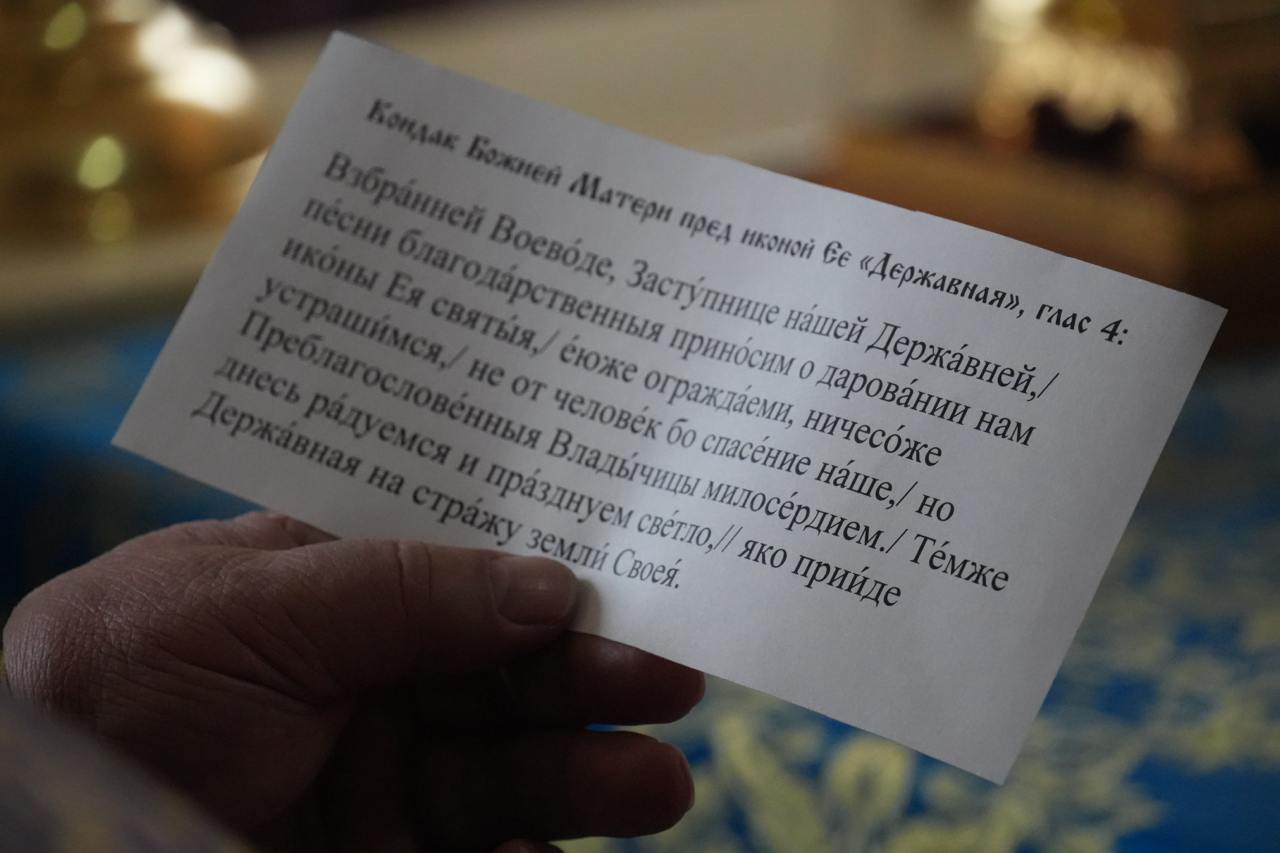 Кондак Божией Матери пред иконой Ее «Державная», глас 4:
Взбра́нней Воево́де, Засту́пнице на́шей Держа́вней,/
пе́сни благода́рственныя прино́сим о дарова́нии нам
ико́ны Ея святы́я,/ е́юже огражда́еми, ничесо́же
устраши́мся,/ не от челове́к бо спасе́ние на́ше,/ но
Преблагослове́нныя Влады́чицы милосе́рдием./ Те́мже
днесь ра́дуемся и пра́зднуем све́тло,// яко прии́де
Держа́вная на стра́жу земли́ Своея́.